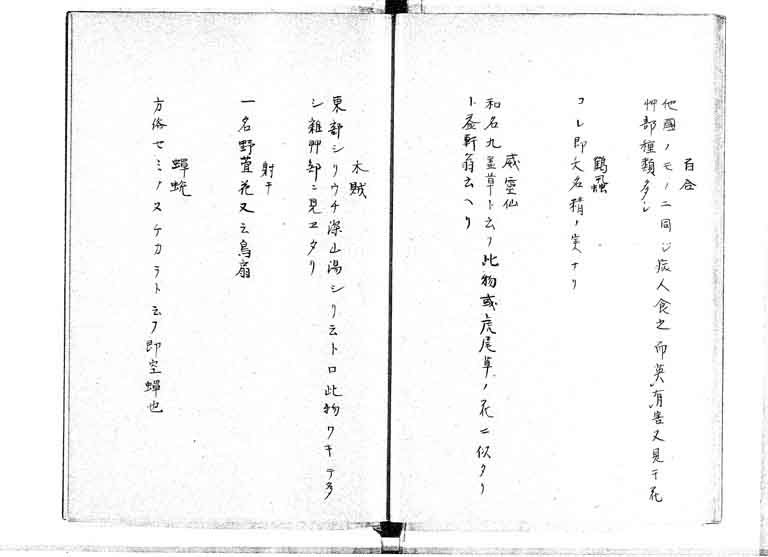 百合
他國ノモノニ同シ病人食之而莫有害又見于花
艸部種類多シ
鶴蝨
コレ即天名精ノ実ナリ
威霊仙
和名九盖草ト云フ此物或虎尾草ノ花ニ似タリ
ト益軒翁云ヘリ
木賊
東部シリウチ深山湯シリ云トロ此物ワキテ多
シ雑艸部ニ見ヱタリ
射干
一名野萱花又云烏扇
蟬蛻
方俗セミノヌケカラト云フ即空蟬也